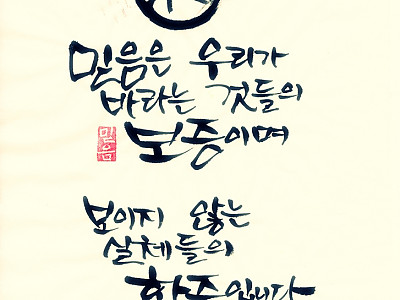 믿음은 우리가
바라는 것들의
믿음
보증이며
보이지 않는
실체들의
확증입니다